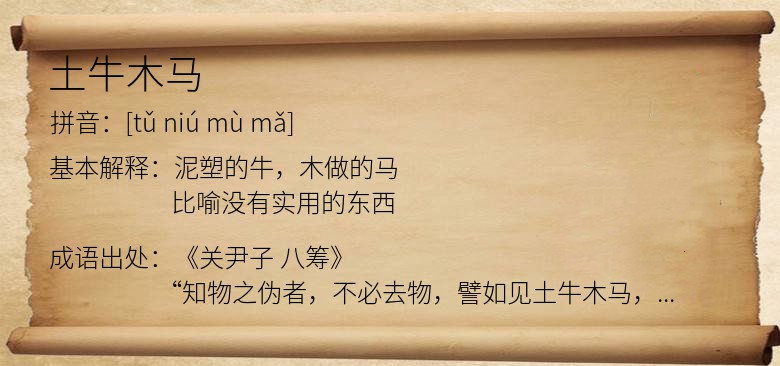 土牛木马
拼音：[tǔ niú mù mǎ]
基本解释：泥塑的牛，木做的马
比喻没有实用的东西
成语出处：《关尹子 八筹》
“知物之伪者，不必去物，譬如见土牛木马，...